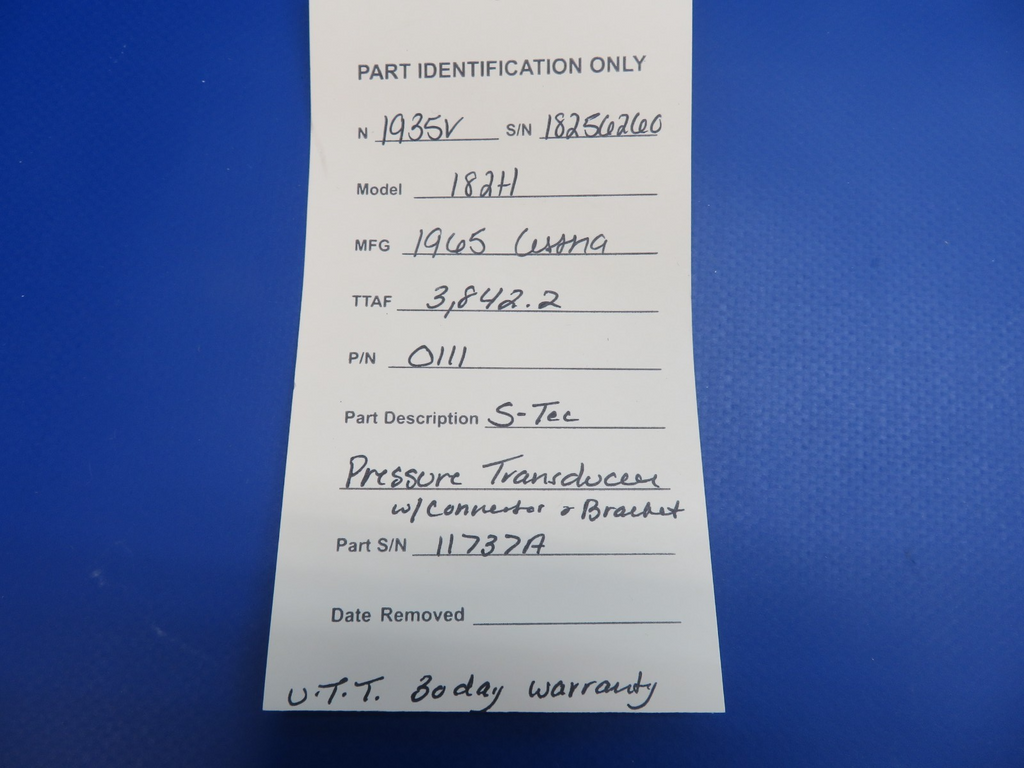 PART IDENTIFICATION ONLY
N 1935V S/N 18256260
Model 182H
MFG 1965 Cessna
TTAF 3,842.2
P/N 0111
Part Description S-Tec
Pressure Transducer
w/ Connector & Bracket
Part S/N 11737A
Date Removed
U.T.T. 30 day warranty